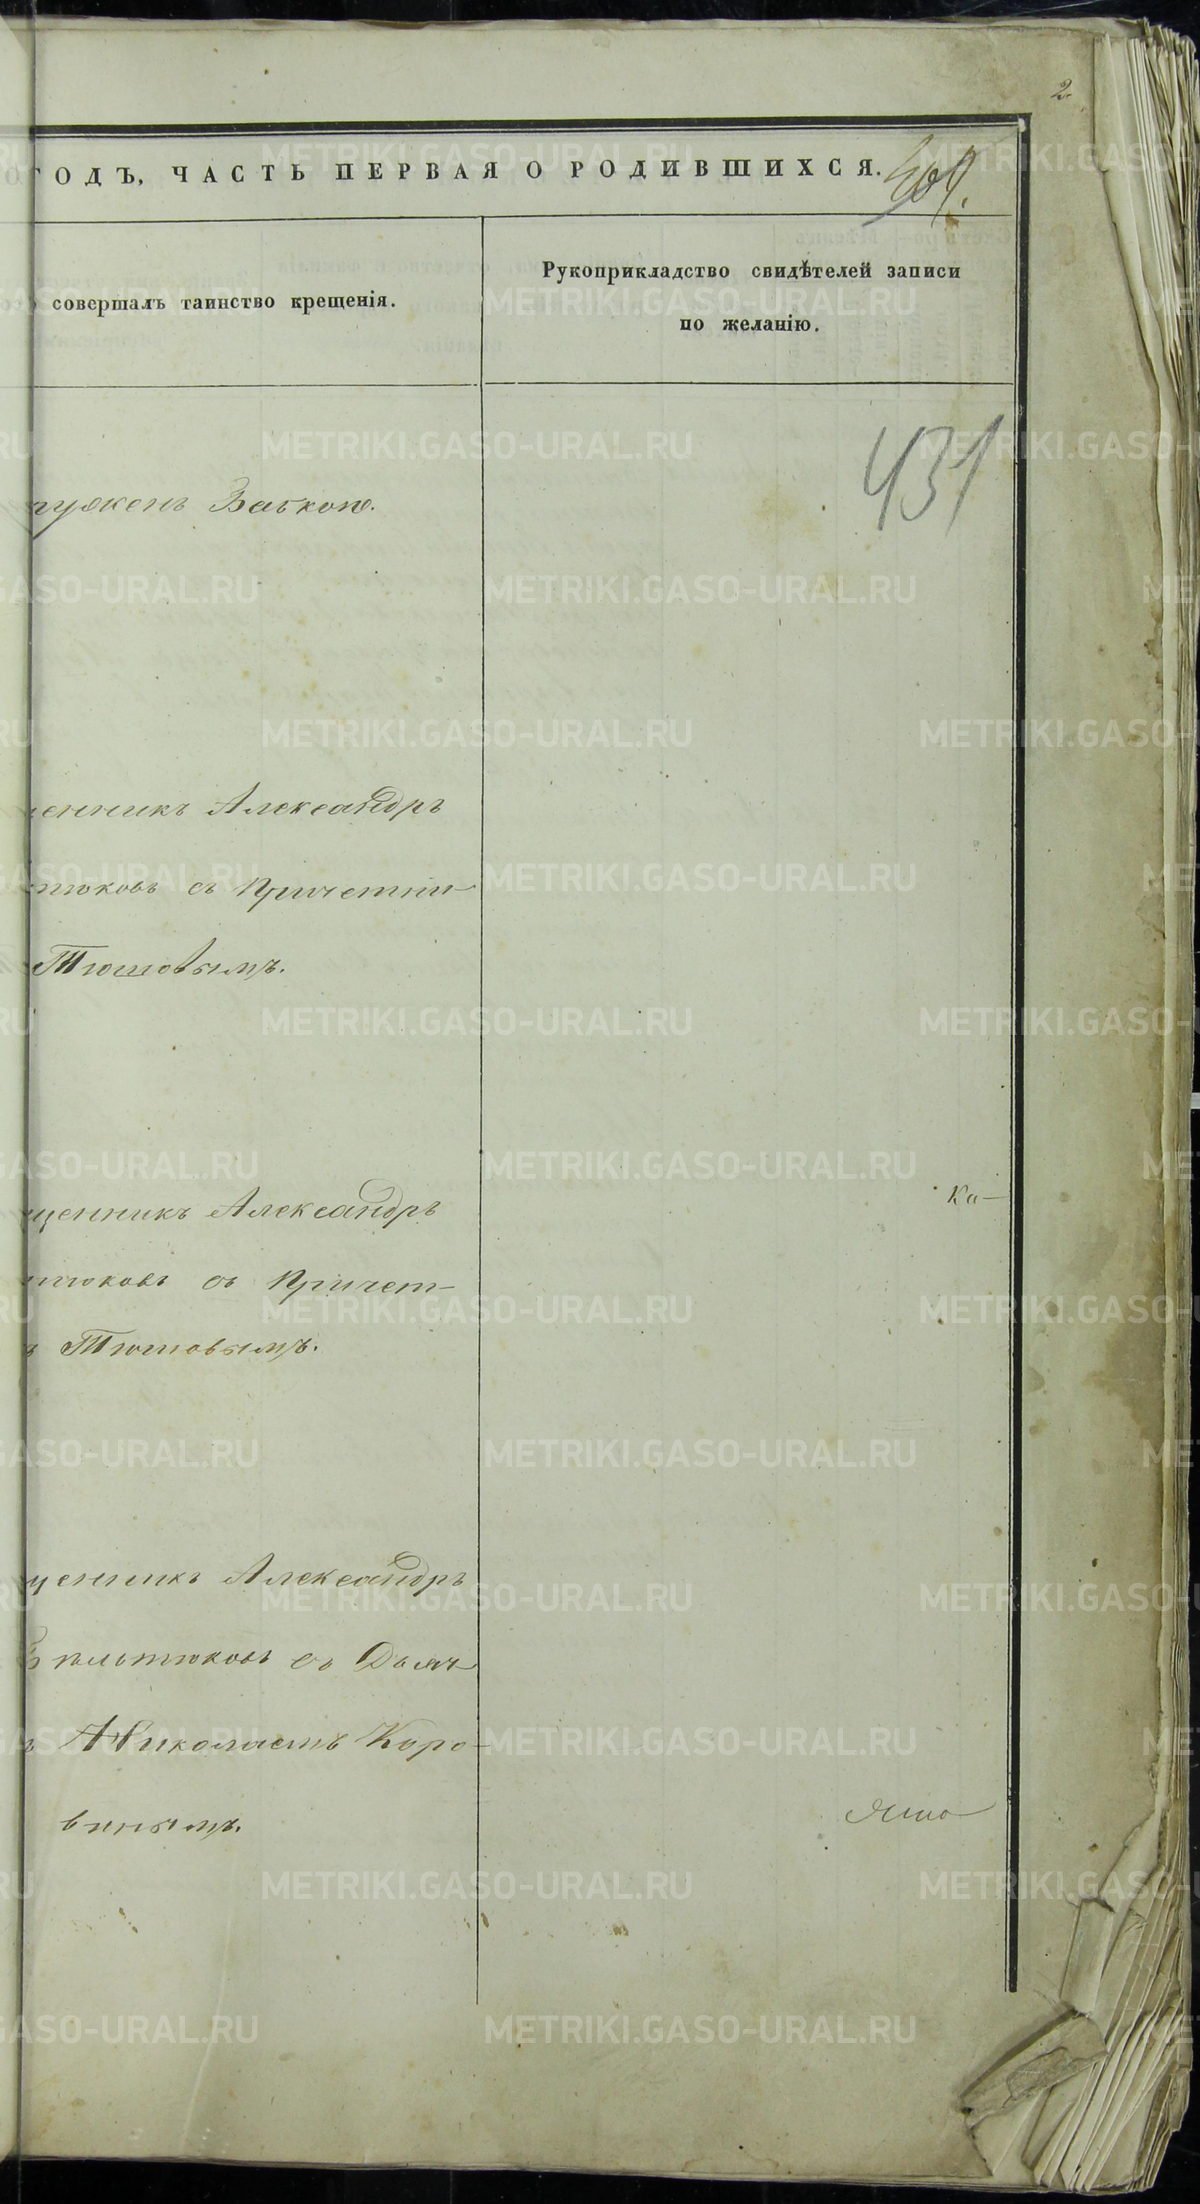 2.
ГОДЪ, ЧАСТЬ ПЕРВАЯ О РОДИВШИХСЯ.
совершалъ таинство крещенія.
Рукоприкладство свидѣтелей записи
по желанію.
431
енникъ Александръ
тюковъ съ Причетни-
Тюшовымъ.
Ка-
щенникъ Александръ
тюковъ съ Причет-
ъ Тюшовымъ.
щенникъ Александръ
съ Дьяч
ъ Николаемъ Коро-
винымъ.
METRIKI.GASO-URAL.RU